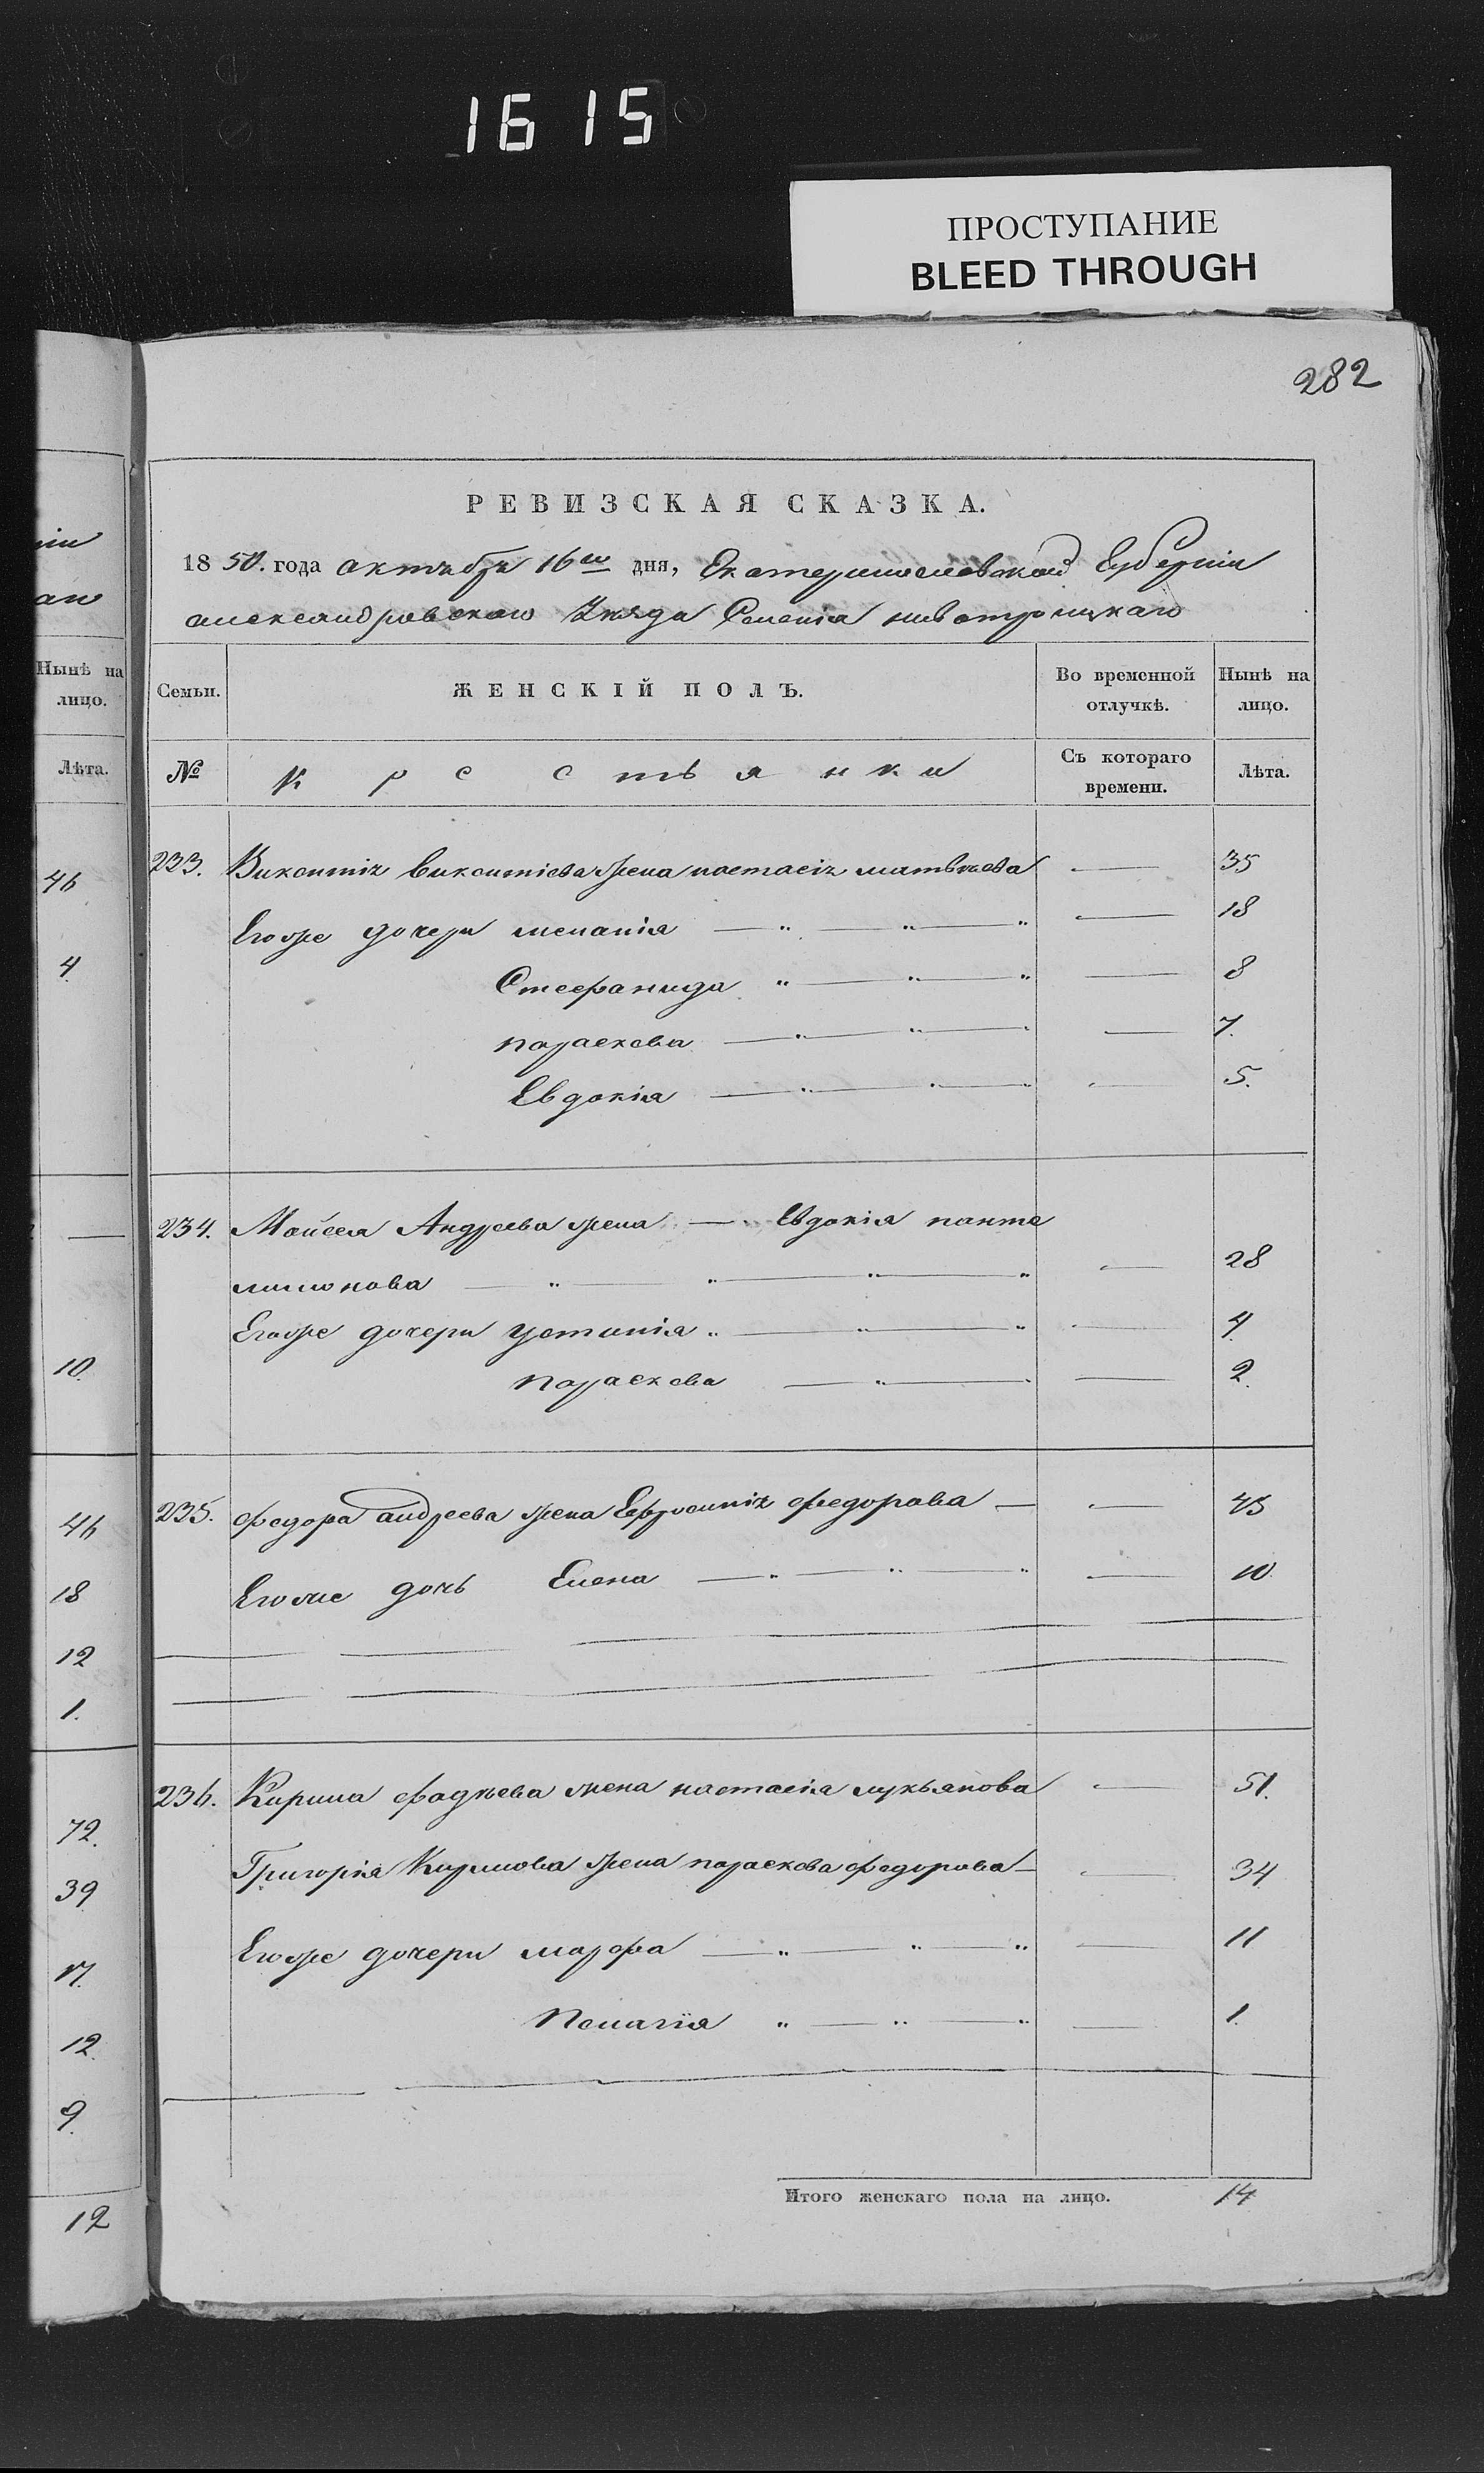 1615
ПРОСТУПАНИЕ
BLEED THROUGH
282
РЕВИЗСКАЯ СКАЗКА.
1850. года октября 16го дня, Екатеринославской Губерніи
александровскаго Уѣзда Селенія новотроицкаго
Нынѣ на лицо.
Лѣта.
46
4
10
46
18
12
1.
72.
39
17.
12.
9.
12
Семьи. ЖЕНСКІЙ ПОЛЪ. Во временной отлучкѣ. Нынѣ на лицо.
№ крестьянки Съ котораго времени. Лѣта.
233. Викентія викентіева жена настасія матвѣева — 35
Егоже дочери меланія — 18
Стефанида — 8
параскева — 7.
Евдокія — 5.
234. Мойсея Андреева жена — Евдокія панте
лимонова — 28
Егоже дочери устинія — 4
параскева — 2.
235. федора андреева жена Ефросинія федорова — 45
Егоже дочь Елена — 10
236. Кирила фадѣева жена настасія лукьянова — 51.
Григорія Кирилова жена параскева федорова — 34
Егоже дочери марфа — 11
Пелагія — 1.
Итого женскаго пола на лицо. 14